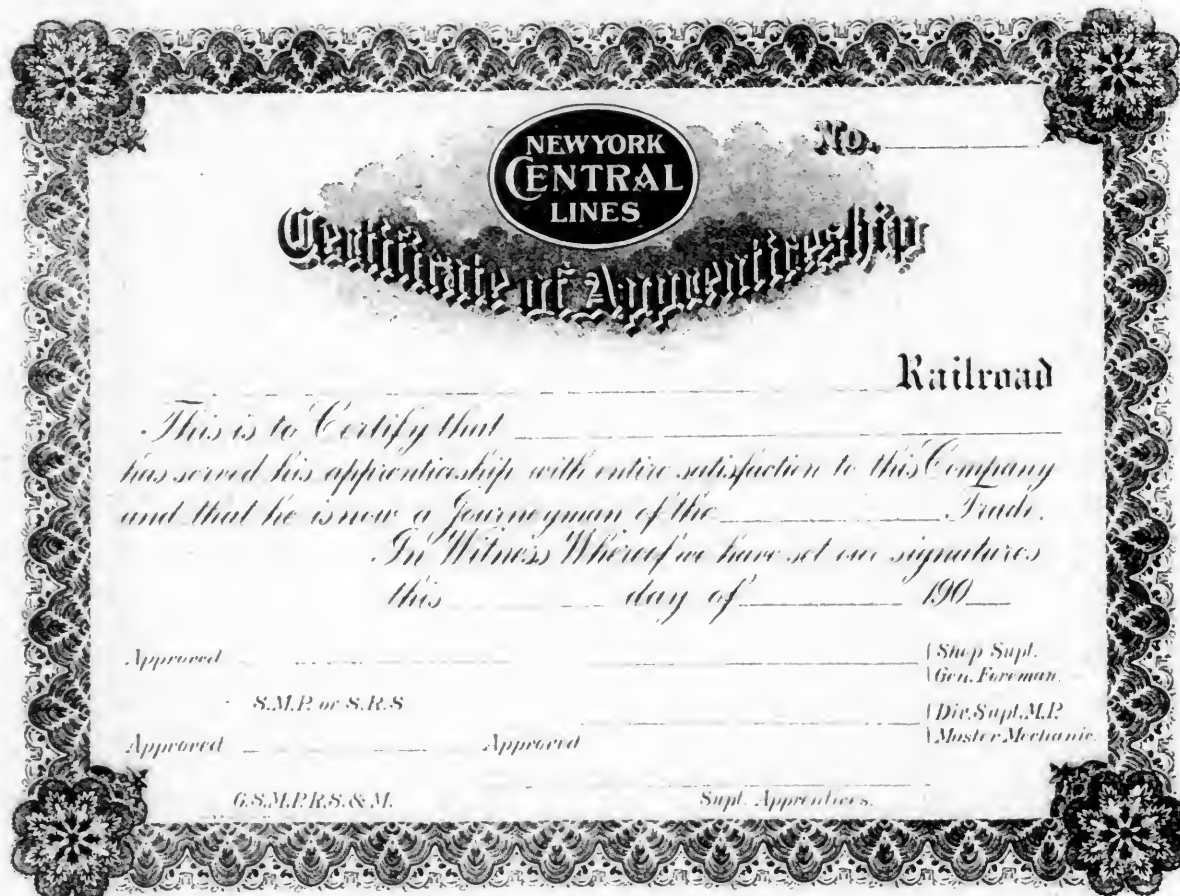 NEW YORK
CENTRAL
LINES
No.
Certificate of Apprenticeship
Railroad
This is to Certify that
has served his apprenticeship with entire satisfaction to this Company
and that he is now a Journeyman of the Trade.
In Witness Whereof we have set our signatures
this day of 190
Approved
Shop Supt.
Gen. Foreman.
S.M.P. or S.R.S
Div. Supt. M.P.
Master Mechanic.
Approved Approved
G.S.M.P.R.S. & M. Supt. Apprentices.